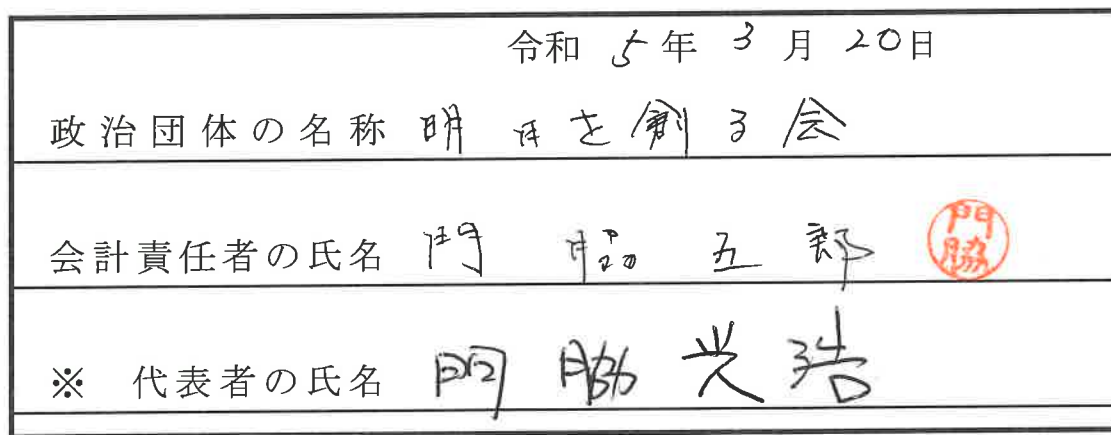 令和 5年 3月 20日
政治団体の名称 明日を創る会
会計責任者の氏名 門脇五郎 門脇
※ 代表者の氏名 門脇光浩